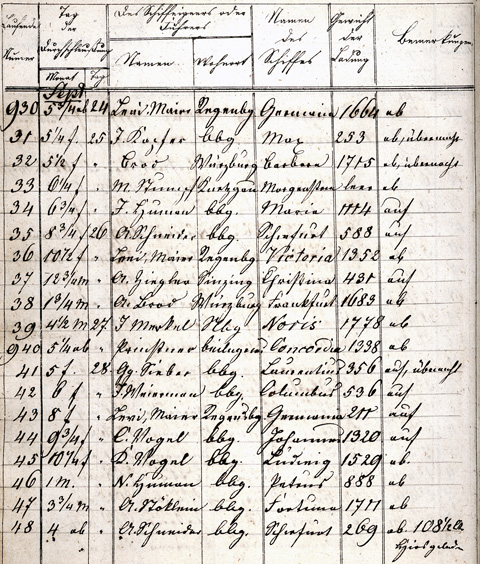 Laufende Numer Tag der Durchschleusung Des Schiffseigners oder Führers Namen des Schiffes Gewicht der Ladung Bemerkungen
Monat Tag Namen Wohnort
Sept
930 5 3/4 ab 24 Levi, Maier Regenbg Germania 1664 ab
31 5 1/4 f. 25 J. Kopfer bbg Max 253 ab, übernacht
32 5 1/2 f " Brod Würzburg Barbara 1715 ab, übernacht
33 6 1/4 f " M. Stumpf Morgenstern leer ab
34 6 3/4 f " J. Human bbg. Maria 1114 auf
35 8 3/4 f 26 A. Schneider bbg. Schwfurt 588 auf
36 10 1/2 f " Levi, Maier Regenbg Victoria 1352 ab
37 12 3/4 m " A. Ziegler Sinzing Christina 431 auf
38 1 3/4 m " A. Brod Würzburg Frankfurt 1683 ab
39 4 1/2 m 27. J Merkel Nbg Noris 1778 ab
940 5 1/4 ab " Concordia 1338 ab
41 5 f. 28 Gg. Sieber bbg. Laurentius 356 auf, übernacht
42 6 f " bbg. Columbus 536 auf
43 8 f " Levi, Maier Regensbg Germania 211 auf
44 9 3/4 f " C. Vogel bbg. Johannes 1320 auf
45 10 1/4 f " K. Vogel bbg. Ludwig 1529 ab.
46 1 m. " N. Human bbg. Petrus 888 ab
47 3 3/4 m " A. Stöklein bbg. Fortuna 1711 ab
48 4 ab " A. Schneider bbg. Schwfurt 269 ab 108 1/2